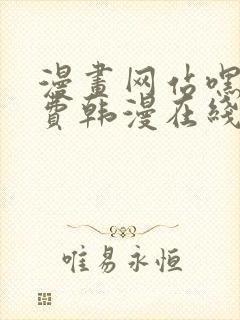 漫畫网站嘿
費韩漫在綫
唯易永恒